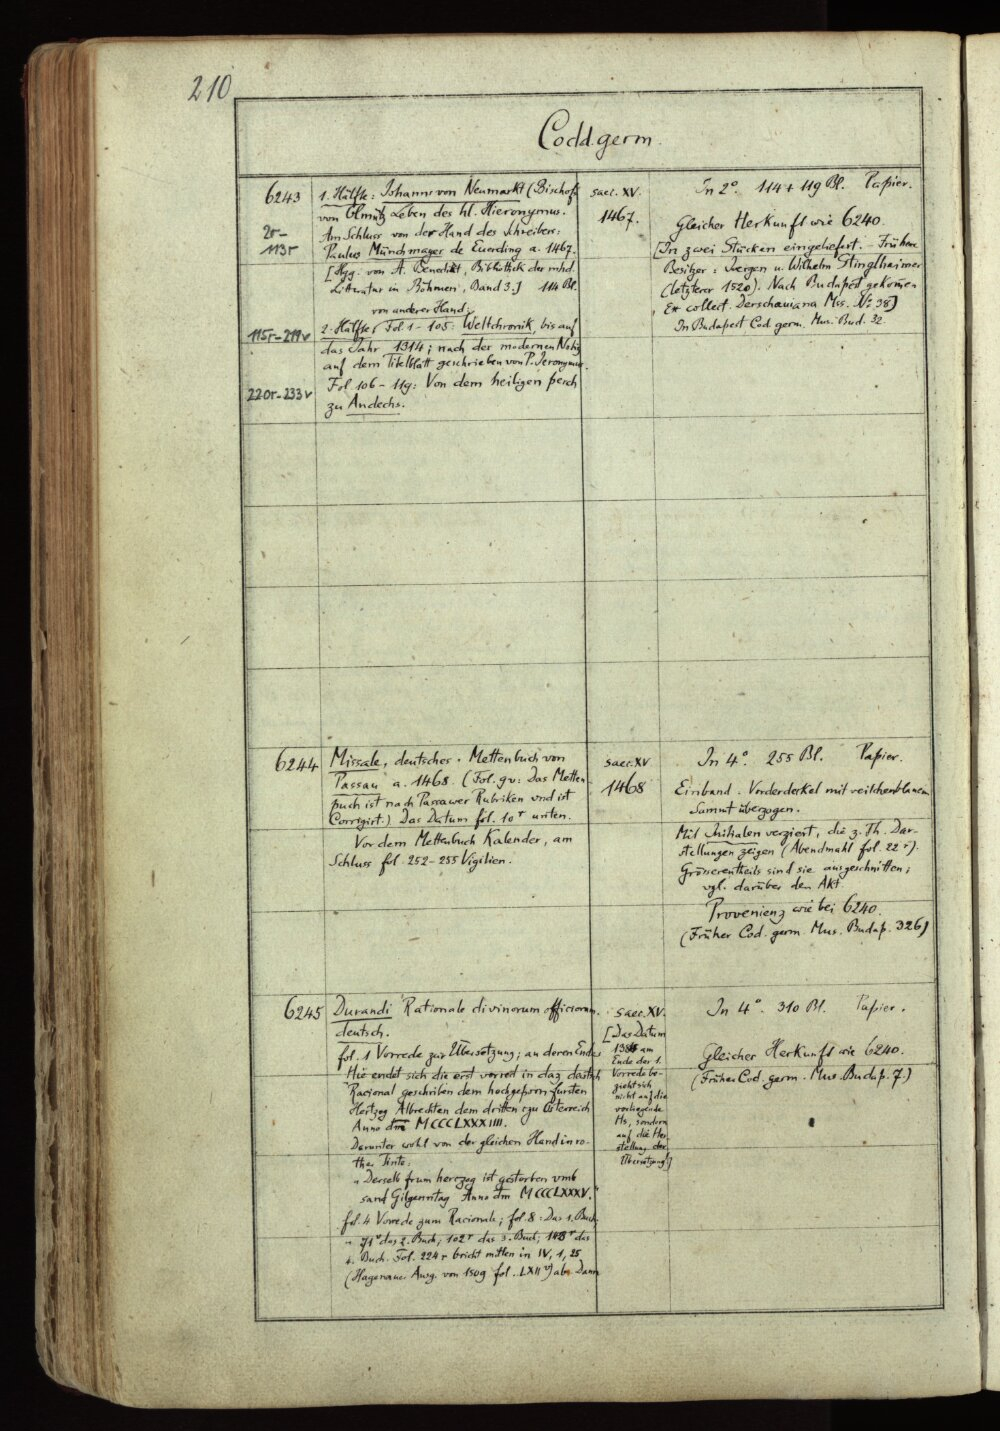 210
Codd. germ.
6243
2r-
113r
115r-219v
220r-233v
1. Hälfte: Johann von Neumarkt (Bischof
von Olmütz) Leben des hl. Hieronymus.
Am Schluss von der Hand des Schreibers:
Paulus Münchmayer de Euerding a. 1467.
[Hgg. von A. Benedikt, Bibliothek der mhd.
Litteratur in Böhmen, Band 3.] 114 Bl.
von anderer Hand:
2. Hälfte, Fol. 1-105: Weltchronik, bis auf
das Jahr 1314; nach der modernen Notiz
auf dem Titelblatt geschrieben von P. Jeronymus.
Fol 106-119: Von dem heiligen perch
zu Andechs.
saec. XV.
1467.
In 2°. 114 + 119 Bl. Papier.
Gleicher Herkunft wie 6240.
[In zwei Stücken eingeliefert. - Frühere
Besitzer: Juergen u. Wilhelm Stinglhaimer
(letzterer 1520). Nach Budapest gekom̄en
Ex collect. Derschawiana Mss. No 38]
In Budapest Cod. germ. Mus. Bud. 32.
6244
Missale, deutsches. Mettenbuch von
Passau a. 1468. (Fol. 9v: Das Metten
puch ist nach Passawer Rubriken vnd ist
Corrigirt.) Das Datum fol. 10r unten.
Vor dem Mettenbuch Kalender, am
Schluss fol. 252-255 Vigilien.
saec. XV
1468
In 4°. 255 Bl. Papier.
Einband. Vorderdeckel mit veilchenblauem
Samt überzogen.
Mit Initialen verziert, die z. Th. Dar-
stellungen zeigen (Abendmahl fol. 22r).
Grösserentheils sind sie ausgeschnitten;
vgl. darüber den Akt.
Provenienz wie bei 6240.
(Früher Cod. germ. Mus. Budap. 326)
6245
Durandi Rationale divinorum officiorum.
deutsch.
fol. 1 Vorrede zur Übersetzung; an deren Ende:
Hie endet sich die erst vorred in daz dewtsch
Racional geschriben dem hochgeporn fursten
Hertzog Albrechten dem dritten czu Osterreich
Anno dm̄ MCCCLXXXIIII.
Darunter wohl von der gleichen Hand in ro-
ther Tinte:
"Derselb frum herczog ist gestorben vmb
sand Gilgenntag Anno dm̄ MCCCLXXXV."
fol. 4 Vorrede zum Racionale; fol. 8: Das 1. Buch
" 71v das 2. Buch; 102r das 3. Buch; das
4. Buch. Fol. 224r bricht mitten in IV, 1, 25
(Hagenauer Ausg. von 1509 fol. LXIIv) ab. Dann
saec. XV.
[Das Datum
1384 am
Ende der 1.
Vorrede be-
zieht sich
nicht auf die
vorliegende
Hs, sondern
auf die Her-
stellung der
Übersetzung!]
In 4°. 310 Bl. Papier.
Gleicher Herkunft wie 6240.
(Früher Cod. germ. Mus. Budap. 7.)